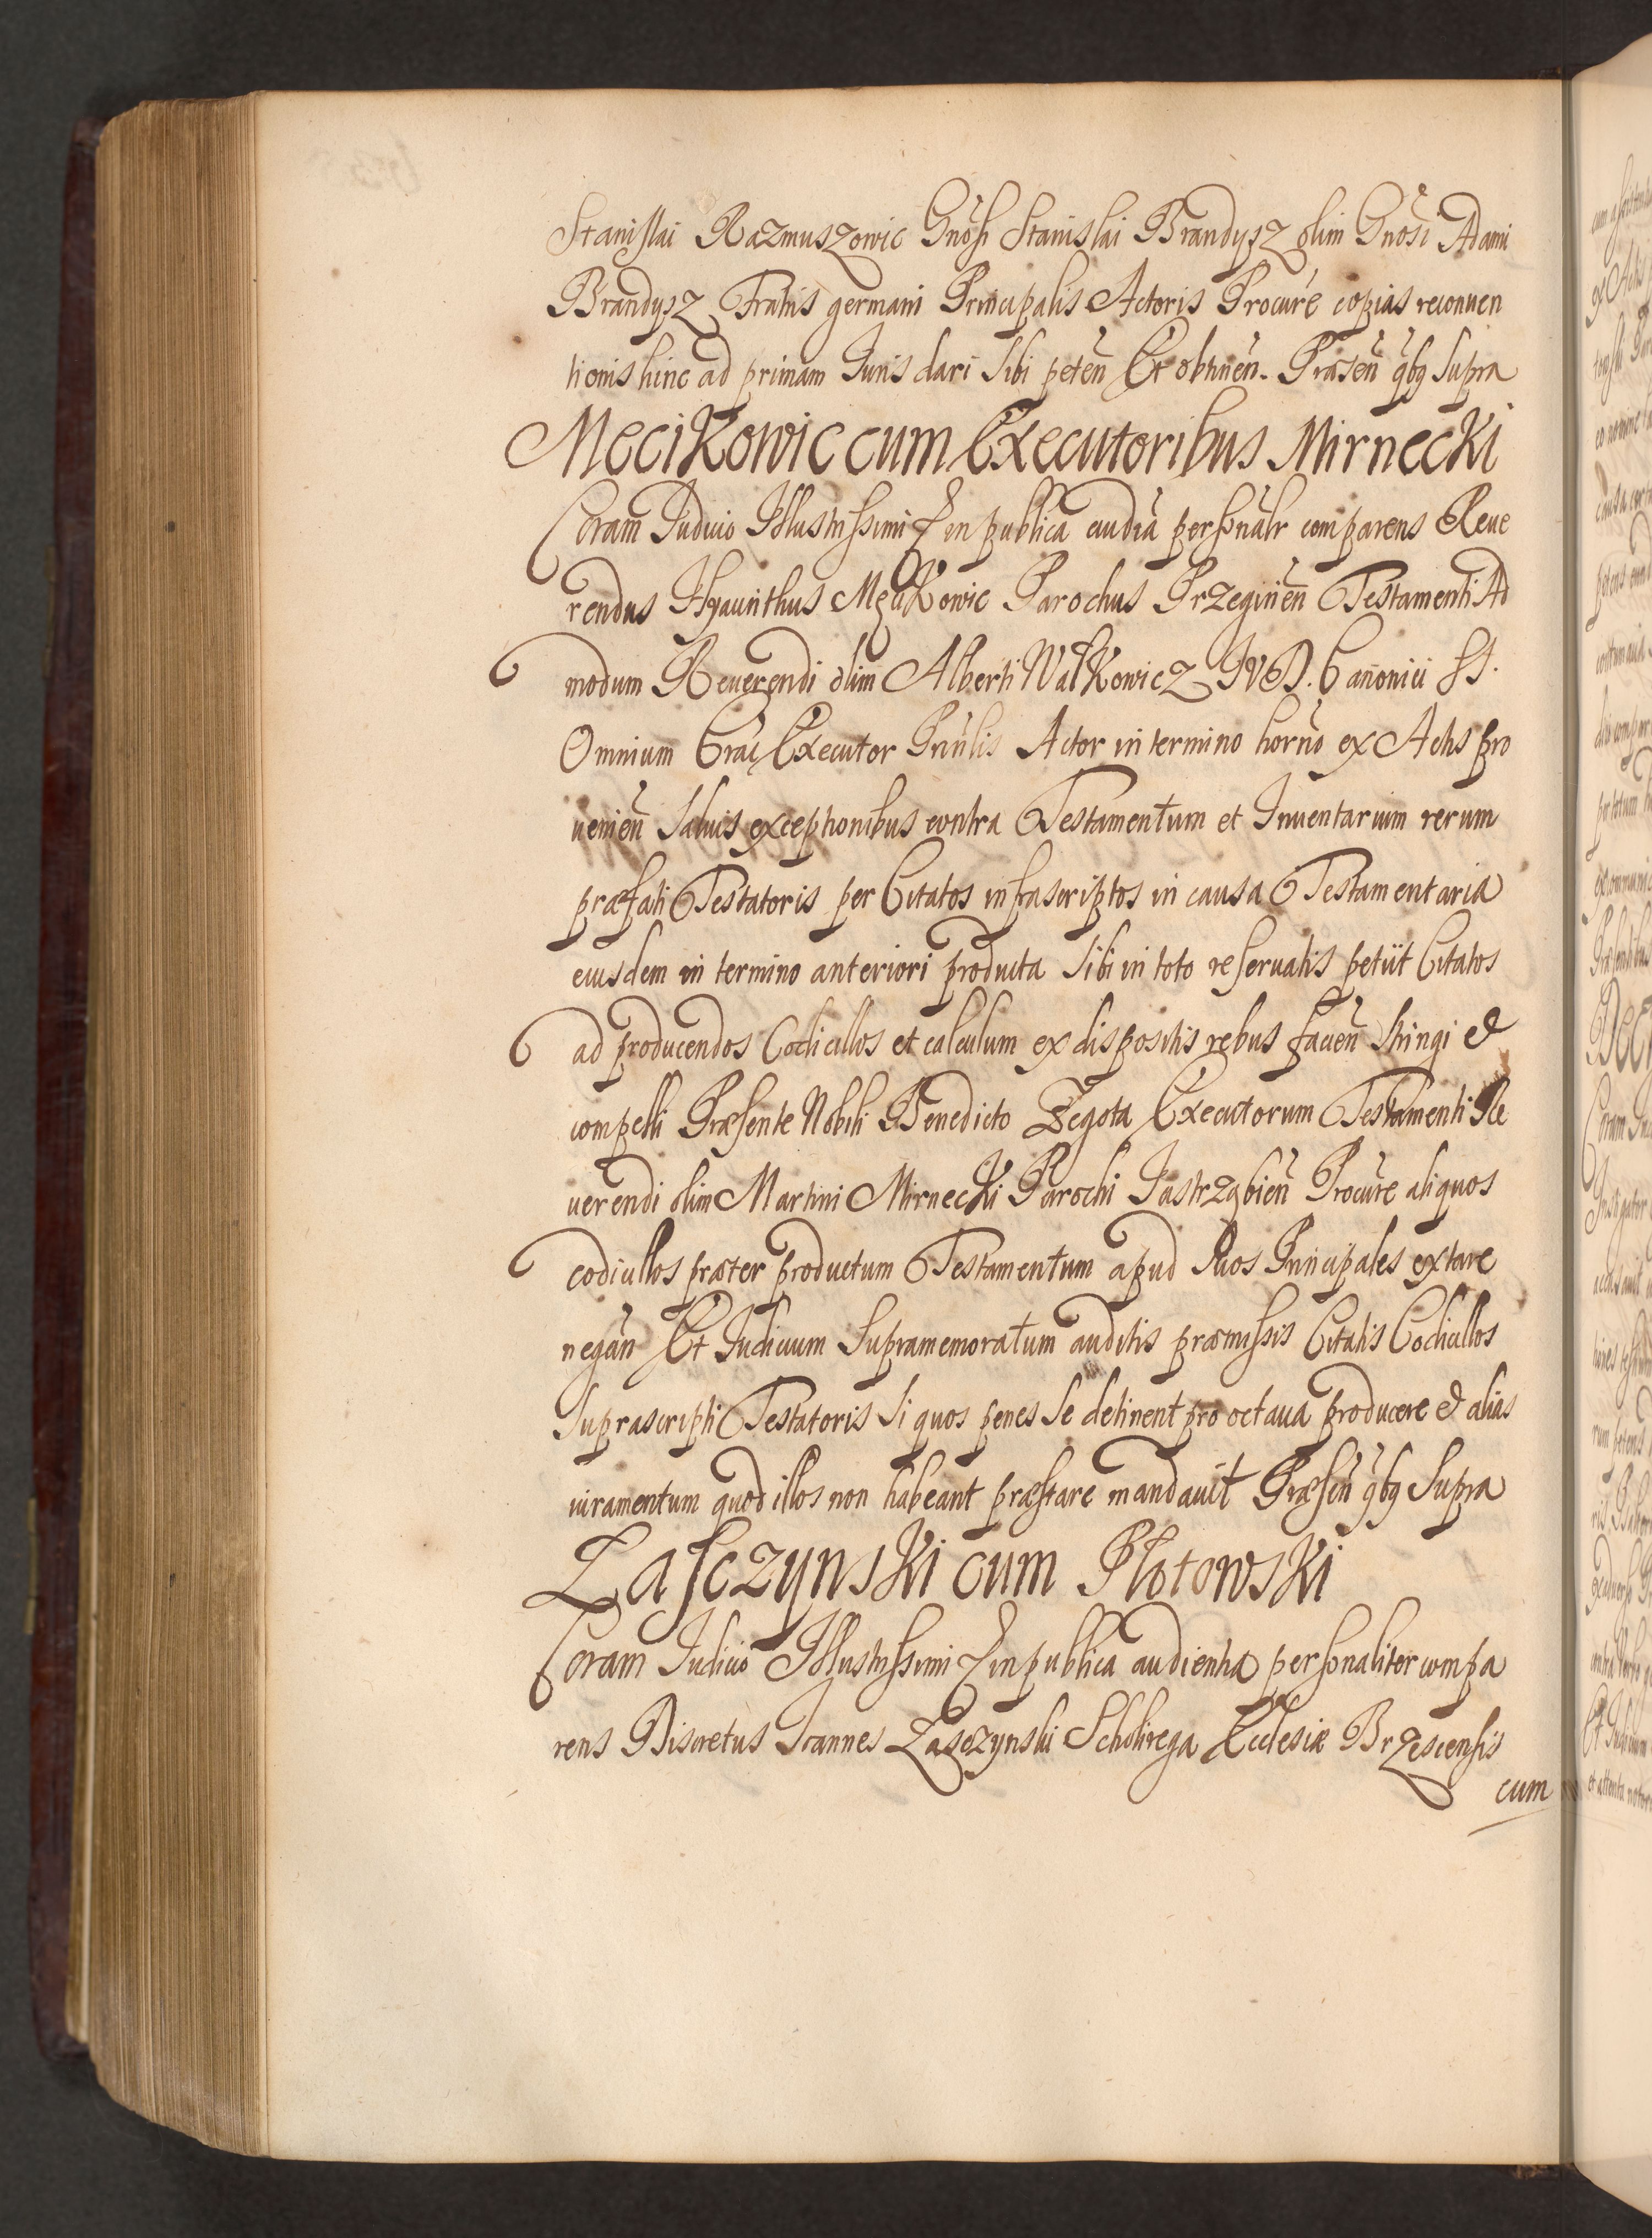 Stanislai Razmuszowic Gnosi Stanislai Brandysz olim Gnosi Adami
Brandysz Fratris germani Principalis Actoris Procure copias reconven
tionis hinc ad primam Juris dari sibi peten Et obtinen. Præsen qbq supra
Mecikowic cum Executoribus Mirnecki
Coram Judicio Illustrissimi & in publica audia personalr comparens Reue
rendus Hyacinthus Męcikowic Parochus Przeginien Testamenti Ad
modum Reuerendi olim Alberti Walkowicz IVD. Canonici SS.
Omnium Crac Executor Prinlis Actor in termino horno ex Actis pro
uenien saluis exceptionibus contra Testamentum et Inuentarium rerum
præfati Testatoris per Citatos infrascriptos in causa Testamentaria
eiusdem in termino anteriori producta sibi in toto reseruatis petiit Citatos
ad producendos Codicillos et calculum ex dispositis rebus facien stringi &
compelli Præsente Nobili Benedicto Zegota Executorum Testamenti Re
uerendi olim Martini Mirnecki Parochi Jastrząbien Procure aliquos
codicillos præter productum Testamentum apud suos Principales extare
negan Et Judicium supramemoratum auditis præmissis Citatis Codicillos
suprascripti Testatoris si quos penes se detinent pro octaua producere & alias
iuramentum quod illos non habeant præstare mandauit Præsen qbq supra
Łasczynski cum Plotowski
Coram Judicio Illustrissimi & in publica audientia personaliter compa
rens Discretus Joannes Łasczynski Scholirega Ecclesiæ Brzescensis
cum